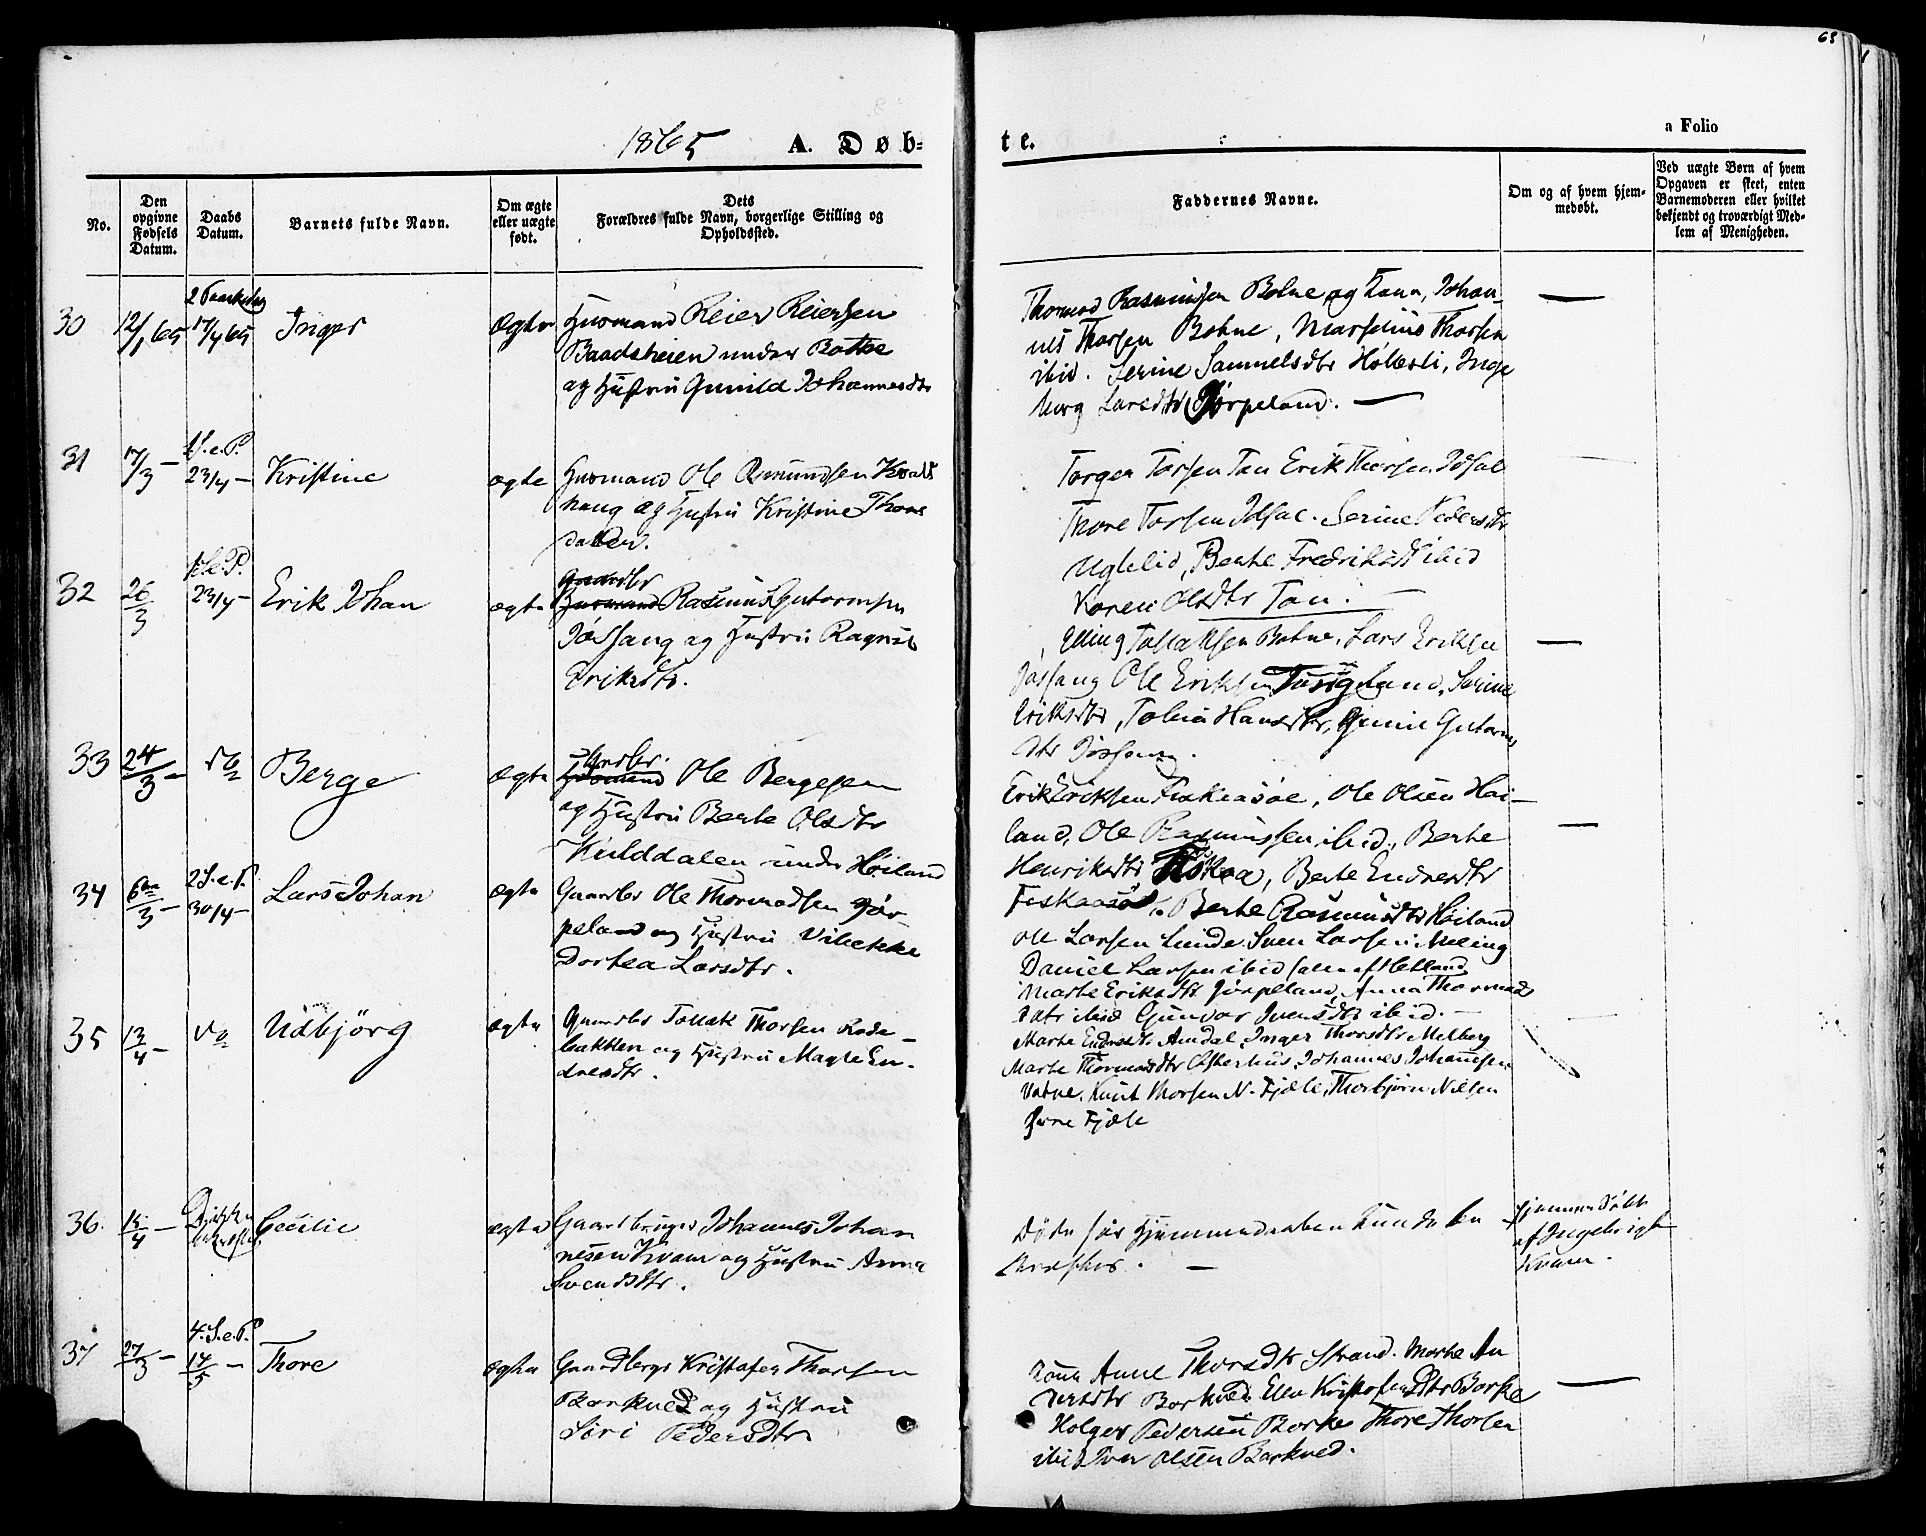 63
a Folio
1865 A. Døb-
te.
No.
Den
opgivne
Fødsels
Datum.
Daabs
Datum.
Barnets fulde Navn.
Om ægte
eller uægte
født.
Dets
Forældres fulde Navn, borgerlige Stilling og
Opholdssted.
Faddernes Navne.
Om og af hvem hjem-
medøbt.
Ved uægte Børn af hvem
Opgaven er skeet, enten
Barnemoderen eller hvilket
bekjendt og troværdigt Med-
lem af Menigheden.
30 12/1 65
2 Paaskedag
17/4 65
Inger
ægte
Huusmand Reier Reiersen
Baadsheien under Botne
og Hustru Gunild Johannesdtr
Thormod Rasmussen Botne og Kone, Johan-
nes Thorsen Botne,
ibid. Serine Samuelsdtr Holesli, Inge
borg Larsdtr Jørpeland. —
—
31 17/3 —
1 S. e. P.
23/4 —
Kristine
ægte
Huusmand Ole
haug og Hustru Kristine Thors
datter.
Torger Torsen Tau Erik Thorsen Idsal
Thore Torsen Idsal. Serine Pedersdtr
Uglelid, Berte Fredriksdtr ibid
Karen Olsdtr Tau. —
32 26/3
1 S. e. P.
23/4 —
Erik Johan
ægte
Gaardbr
Huusmand Rasmus Guttormsen
Jøssang og Hustru Ragnil
Eriksdtr.
Elling Tollaksen Botne, Lars Eriksen
Jøssang Ole Eriksen Tungland, Serine
Eriksdtr, Tobia Hansdtr, Gunil Gutorms
dtr Jøssang.
—
33 24/3 —
do
Berge
ægte
Gaardbr.
Huusmand Ole Bergesen
og Hustru Berte Olsdtr
Kulddalen under Høiland
Erik Eriksen Fiskaasøe, Ole Olsen Høi-
land, Ole Rasmussen ibid, Berte
Henriksdtr Fiskaa, Berte Endresdtr
Fiskaasø, Berte Rasmusdtr Høiland
—
34
2 S. e. P.
30/4 —
Lars Johan
ægte
Gaardbr Ole Thormodsen Jør-
peland og Hustru Vibekke
Dortea Larsdtr.
Ole Larsen Linde, Sven Larsen Meling
Daniel Larsen ibid
Marte Eriksdtr Jørpeland, Anna Thormods
datr ibid Gunvor Iversdtr ibid. —
35 13/4 —
do
Udbjörg
ægte
Gaardbr Tollak Thorsen Røde-
bakken og Hustru Magle En-
dresdtr.
Marte Endresdtr Amdal, Inger Thorsdtr Melberg
Marte Thormodsdtr Østerhus, Johannes Johannesen
Vatne, Knut Thorsen N. Fjælle, Thorbjørn Nilsen
Fjæle
36. 15/4 —
Cecilie
ægte
Gaardbruger Johannes Johan
nesen Kvam og Hustru Anna
Svendsdtr.
Døde før Hjemmedaaben kunde be
kræftes. —
Hjemmedøbt
af Ingebrigt
Kvam.
37 27/3 —
4. S. e. P.
14/5 —
Thore
ægte
Gaardbrgr Kristofer Thorsen
Barkved og Hustru
Siri Pedersdtr
Kone Anne Thorsdtr Strand. Marte An
dersdtr Barkved, Elen Kristofersdtr Barkve
Holger Pedersen Borke Thore Thorsen
ibid Iver Olsen Barkved.
—